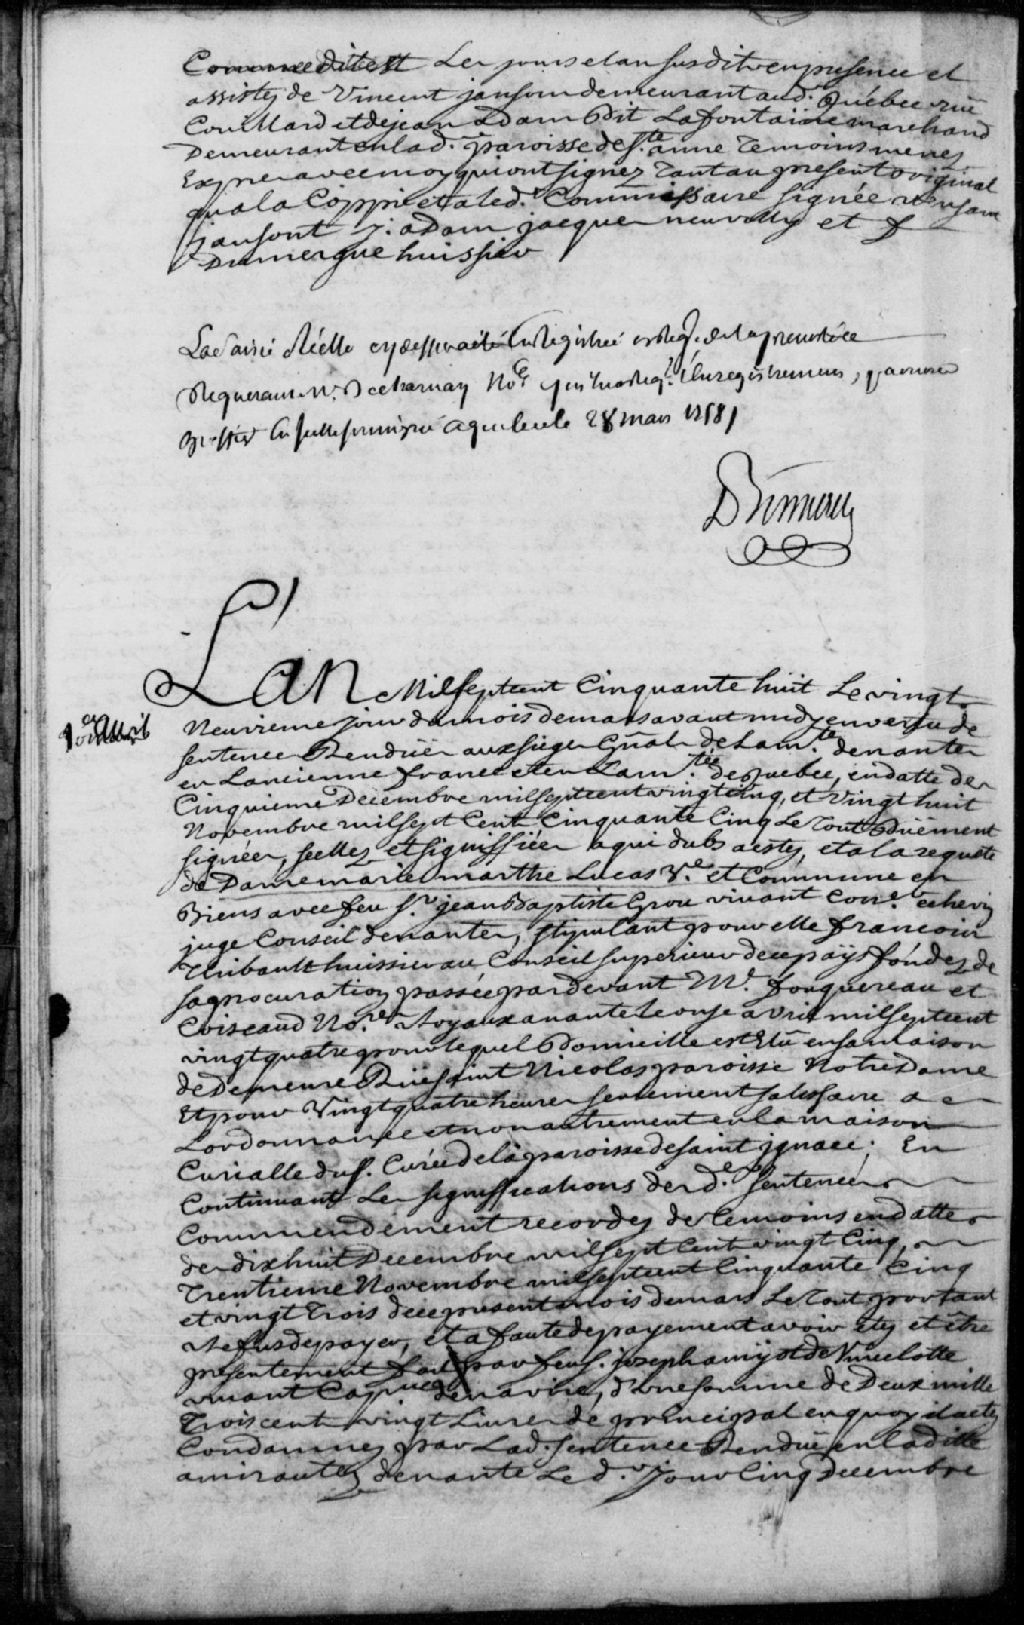 Comme dit est Les jours et an susdits en presence et
assistez de Vincent janson demeurant aud. Québec rüe
Couillard et de jean adam Dit Lafontaine marchand
Demeurant en lad. paroisse de Ste. anne Temoins menez
Expres avec moy qui ont signez Tant au present original
qua la Coppie et a led. Commissaire signée vinsant
janson J. adam jacque neuville et D
Dumergue huissier
La saisie Réelle cy dessus a été Enregistrée es Reg. de la prevostée
Requerant Mr. Decharnay No.re L'enregistrement,
Greffier 28 mars 1758
L'an Mil sept cent Cinquante huit Le vingt
Neuvieme jour du mois de mars avant midy en vertu de
sentences Rendües aux sieges Gñal de Lam.te de nantes
en Lancienne france et en Lam.tée de quebec, en datte des
Cinquieme Decembre mil sept cent vingt cinq, et Vingt huit
Novembre mil sept Cent Cinquante Cinq Le Tout Düement
signées, scellez et signiffiées a qui dubs a estez, et a la requete
de Dame marie marthe Lucas V.e et Commune en
Biens avec feu S.r jean Baptiste Grou vivant Con.er echevin
juge Conseil de nantes, stipulant pour elle francois
Thibault huissier au Conseil superieur de ce pays fondez de
sa procuration passée pardevant M.e fouquereau et
Coiscaud No.res Royaux a nante le onze avril mil sept cent
vingt quatre pour lequel Domicille est Elu en sa maison
de Demeure Rüe saint Nicolas paroisse Notre Dame
Et pour Vingt quatre heures seulement satisfaire a
Lordonnance et non autrement en la maison
Curialle du S. Curée de la paroisse de saint ignace; En
Continuant Les significations des d.e sentences
Commendement recordez de temoins en datte
des dix huit Decembre mil sept Cent vingt Cinq,
Trentieme Novembre mil sept cent Cinquante Cinq
et vingt Trois de ce present mois de mars Le Tout portant
Refus de payer, et a faute de payement avoir etez et être
presentement fait par feu S. joseph amiyot de Vincelotte
vivant Cap.ne de navire, d'une somme de Deux mille
Trois cent vingt Livres de principal en quoy il a etez
Condamnez par Lad. sentence Rendüe en la ditte
amirautez de nante Le d. jour Cinq Decembre